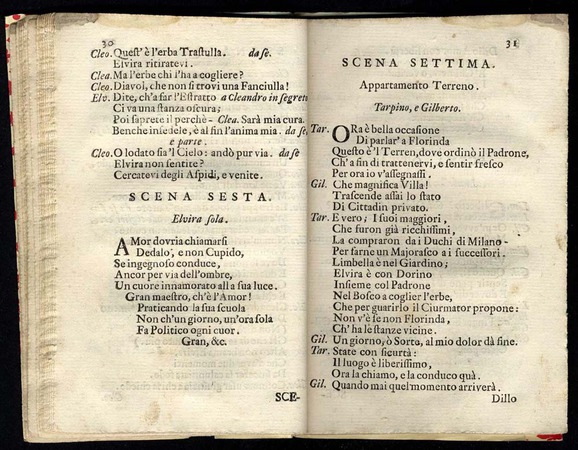 30
Cleo. Quest' è l'erba Trastulla. da se.
Elvira ritiratevi.
Clea. Ma l'erbe chi l'ha a cogliere?
Cleo. Diavol, che non si trovi una Fanciulla!
Elv. Dite, ch'a far l'Estratto a Cleandro in segreto
Ci va una stanza oscura;
Poi saprete il perchè - Clea. Sarà mia cura.
Benche infedele, è al fin l'anima mia. da se,
e parte.
Cleo. O lodato sia'l Cielo: andò pur via. da se
Elvira non sentite?
Cercatevi degli Aspidi, e venite.
SCENA SESTA.
Elvira sola.
AMor dovria chiamarsi
Dedalo, e non Cupido,
Se ingegnoso conduce,
Ancor per via dell'ombre,
Un cuore innamorato alla sua luce.
Gran maestro, ch'è l'Amor!
Praticando la sua scuola
Non ch'un giorno, un'ora sola
Fa Politico ogni cuor.
Gran, &c.
SCE-
31
SCENA SETTIMA.
Appartamento Terreno.
Tarpino, e Gilberto.
Tar. ORa è bella occasione
Di parlar' a Florinda
Questo è 'l Terren, dove ordinò il Padrone,
Ch'a fin di trattenervi, e sentir fresco
Per ora io v'assegnassi.
Gil. Che magnifica Villa!
Trascende assai lo stato
Di Cittadin privato.
Tar. E vero; I suoi maggiori,
Che furon già ricchissimi,
La compraron da i Duchi di Milano-
Per farne un Majorasco a i successori.
Limbella è nel Giardino;
Elvira è con Dorino
Insieme col Padrone
Nel Bosco a coglier l'erbe,
Che per guarirlo il Ciurmator propone:
Non v'è se non Florinda,
Ch' ha le stanze vicine.
Gil. Un giorno, ò Sorte, al mio dolor dà fine.
Tar. State con sicurtà:
Il luogo è liberissimo,
Ora la chiamo, e la conduco quà.
Gil. Quando mai quel momento arriverà.
Dillo